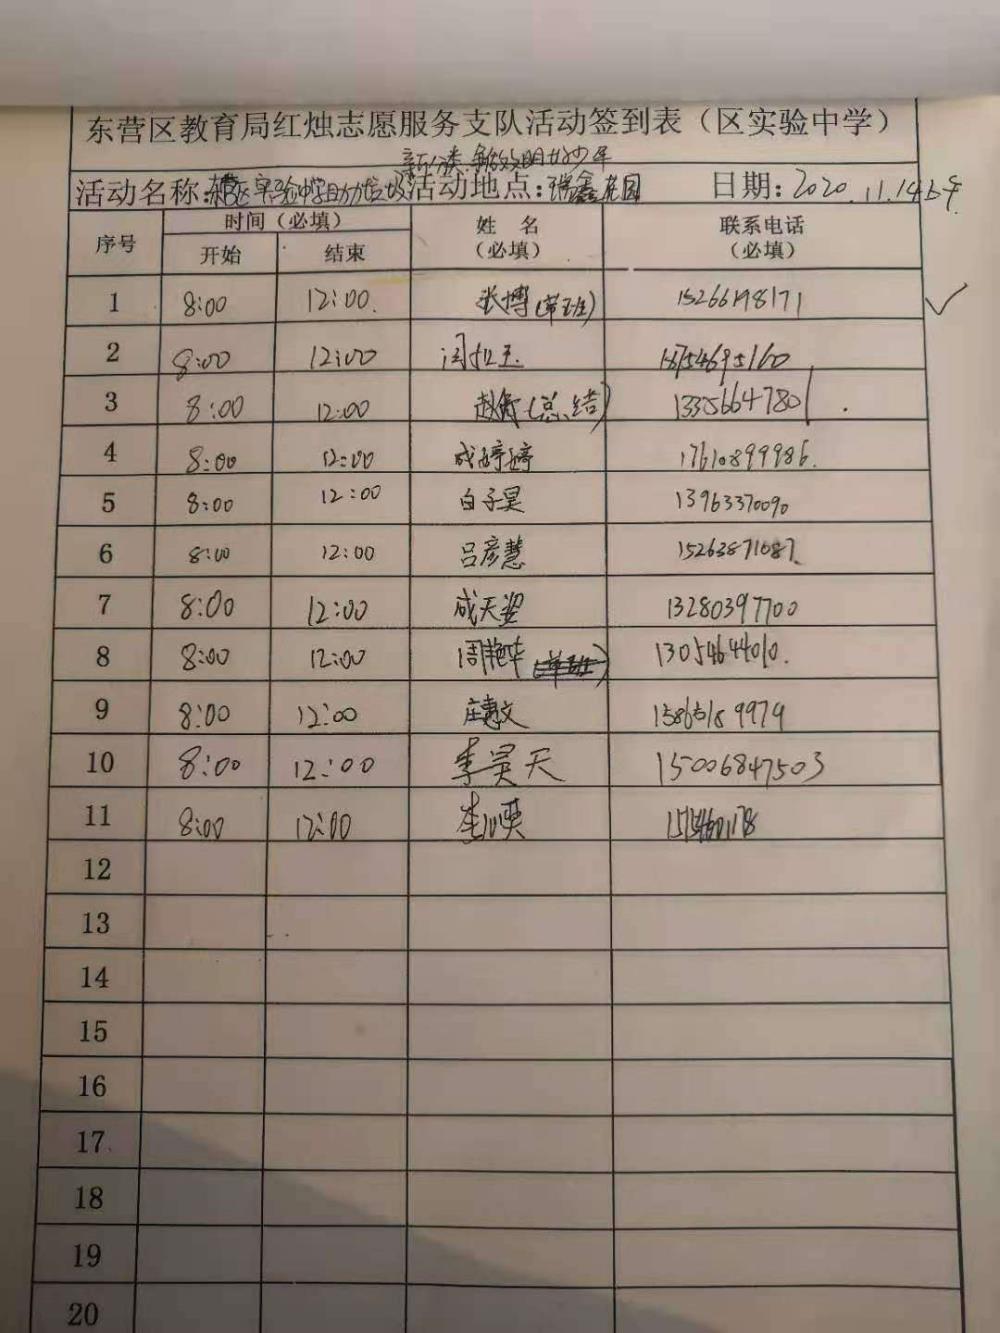 东营区教育局红烛志愿服务支队活动签到表（区实验中学）
新分类.争做文明好少年
活动名称:东营区实验中学助力垃圾 活动地点:瑞鑫花园 日期:2020.11.14上午
序号 时间（必填） 姓 名（必填） 联系电话（必填）
开始 结束
1 8:00 12:00. 张博(带班) 15266198171 ✓
2 8:00 12:00
3 8:00 12:00 (总结) 13356647801
4 8:00 12:00 成婷婷 17610899986.
5 8:00 12:00 白子昊 13963370090
6 8:00 12:00 吕彦慧 15263871087.
7 8:00 12:00 成天 13280397700
8 8:00 12:00 周艳华 13054644010.
9 8:00 12:00 庄惠文 15865189979
10 8:00 12:00 李昊天 15006847503
11 8:00 12:00 李
12
13
14
15
16
17
18
19
20